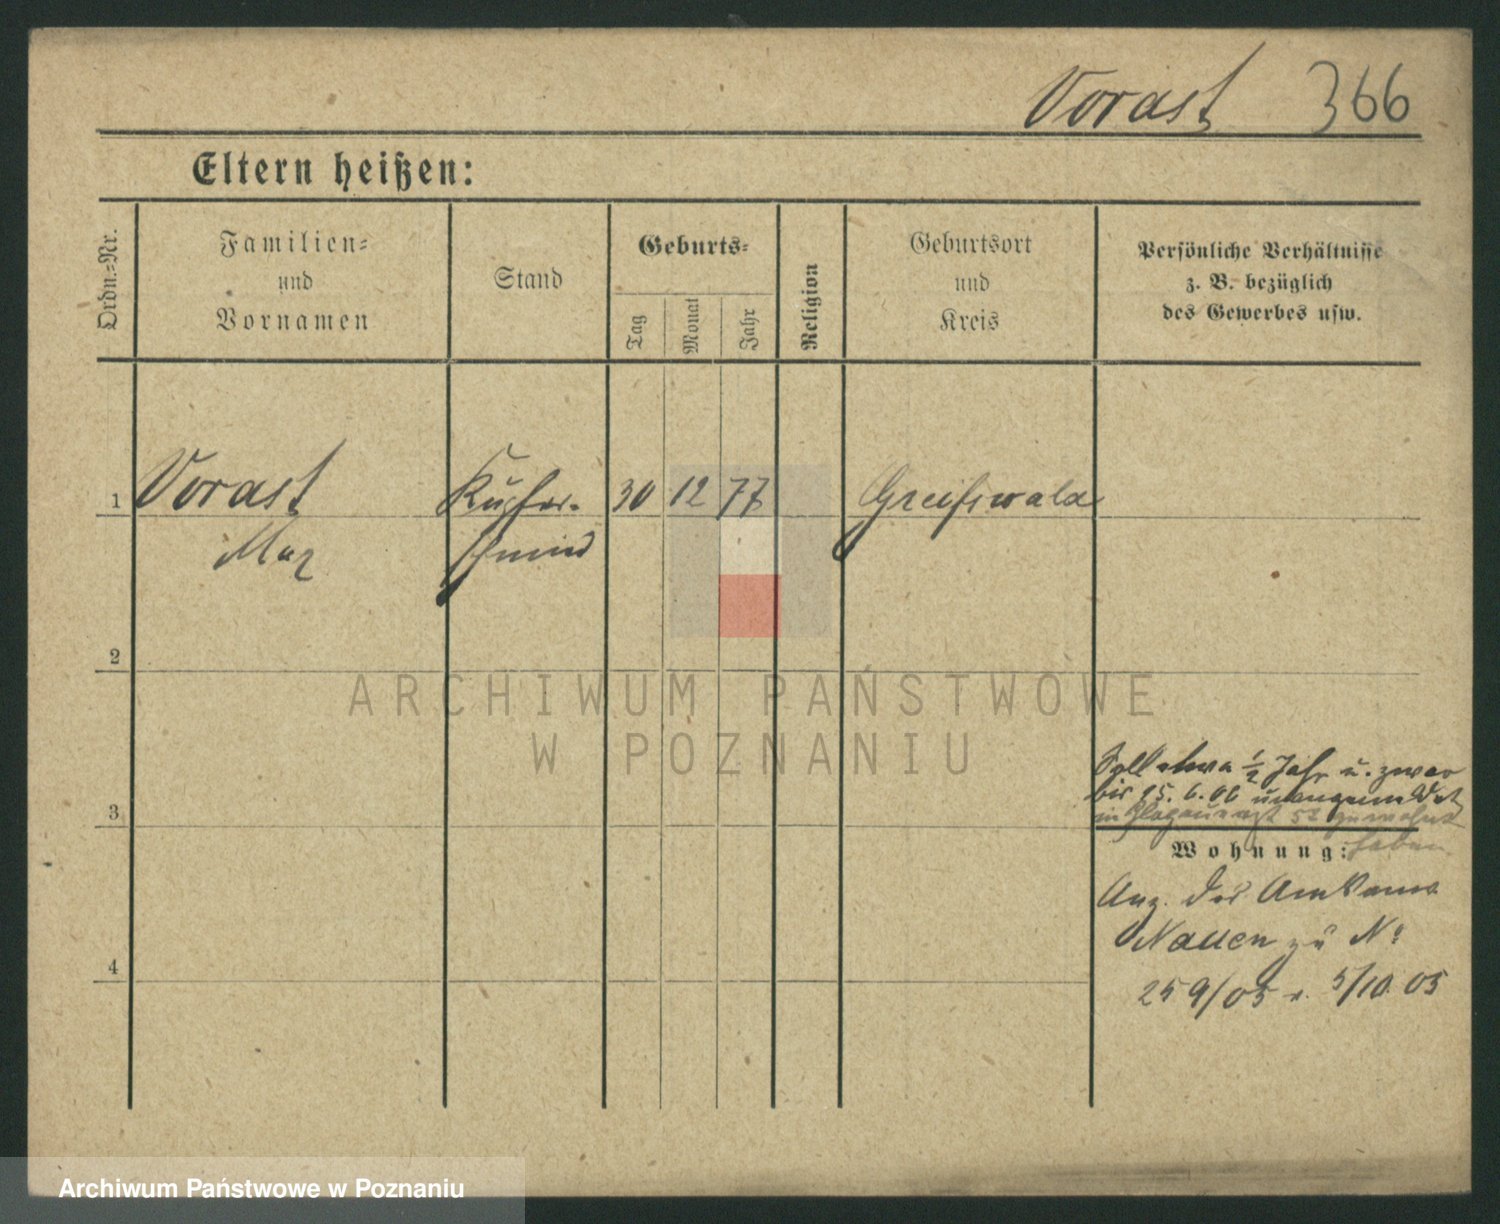 Vorast 366
Eltern heißen:
Ordn.=Nr.
Familien=
und
Vornamen
Stand
Geburts=
Tag
Monat
Jahr
Religion
Geburtsort
und
Kreis
Persönliche Verhältnisse
z. B. bezüglich
des Gewerbes usw.
1 Vorast Kupfer- 30 12 77 Greifswald
Max schmied
2
ARCHIWUM PAŃSTWOWE
W POZNANIU
Soll etwa ½ Jahr u. zwar
bis 15. 6. 06 unangemeldet
3 in 52 gewohnt
Wohnung: haben
Anz. des
Nauen zu No
4 259/05 v. 5/10. 05
Archiwum Państwowe w Poznaniu